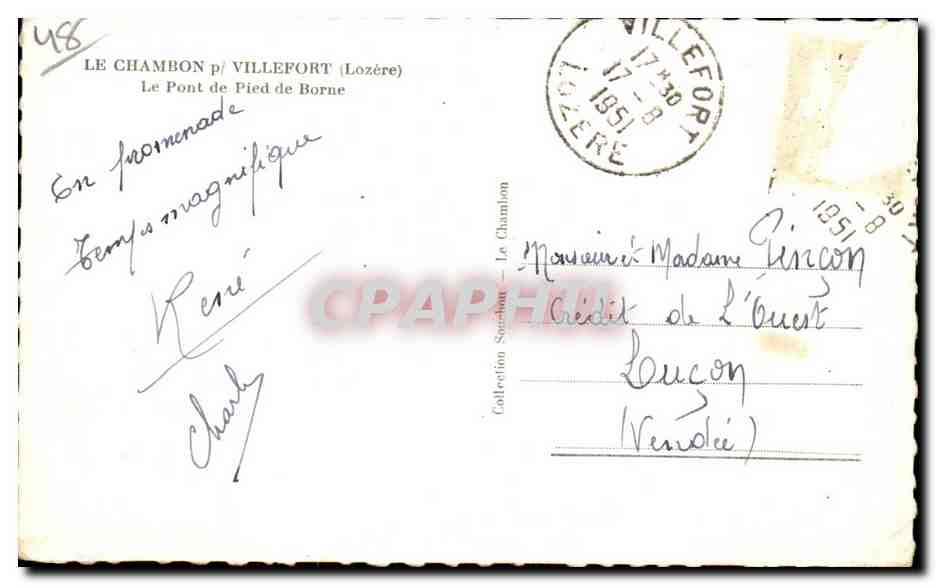 48
LE CHAMBON p/ VILLEFORT (Lozère)
Le Pont de Pied de Borne
En promenade
Temps magnifique
René
Charly
Collection Souchon - Le Chambon
VILLEFORT
17H30
17-8
1951
LOZERE
30
-8
1951
Monsieur et Madame Pinçon
Crédit de L'Ouest
Luçon
(Vendée)
CPAPHIL